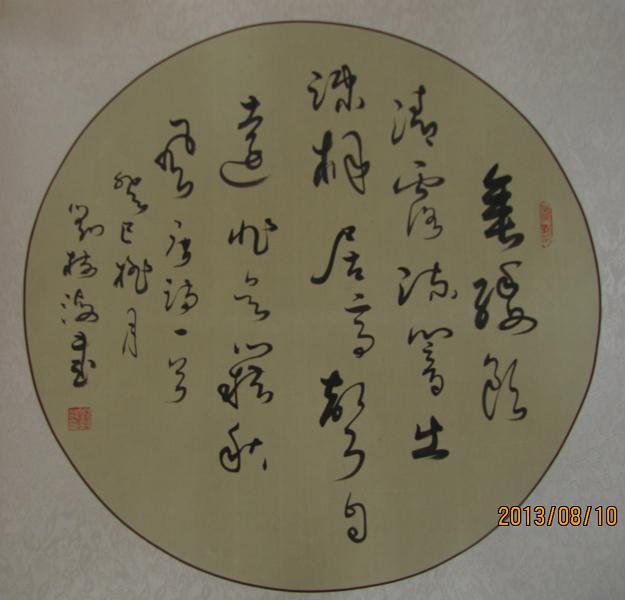 垂緌飲
清露流響出
疎桐居高聲自
遠非是藉秋
風唐詩一首
癸巳桃月
劉樹海書
2013/08/10